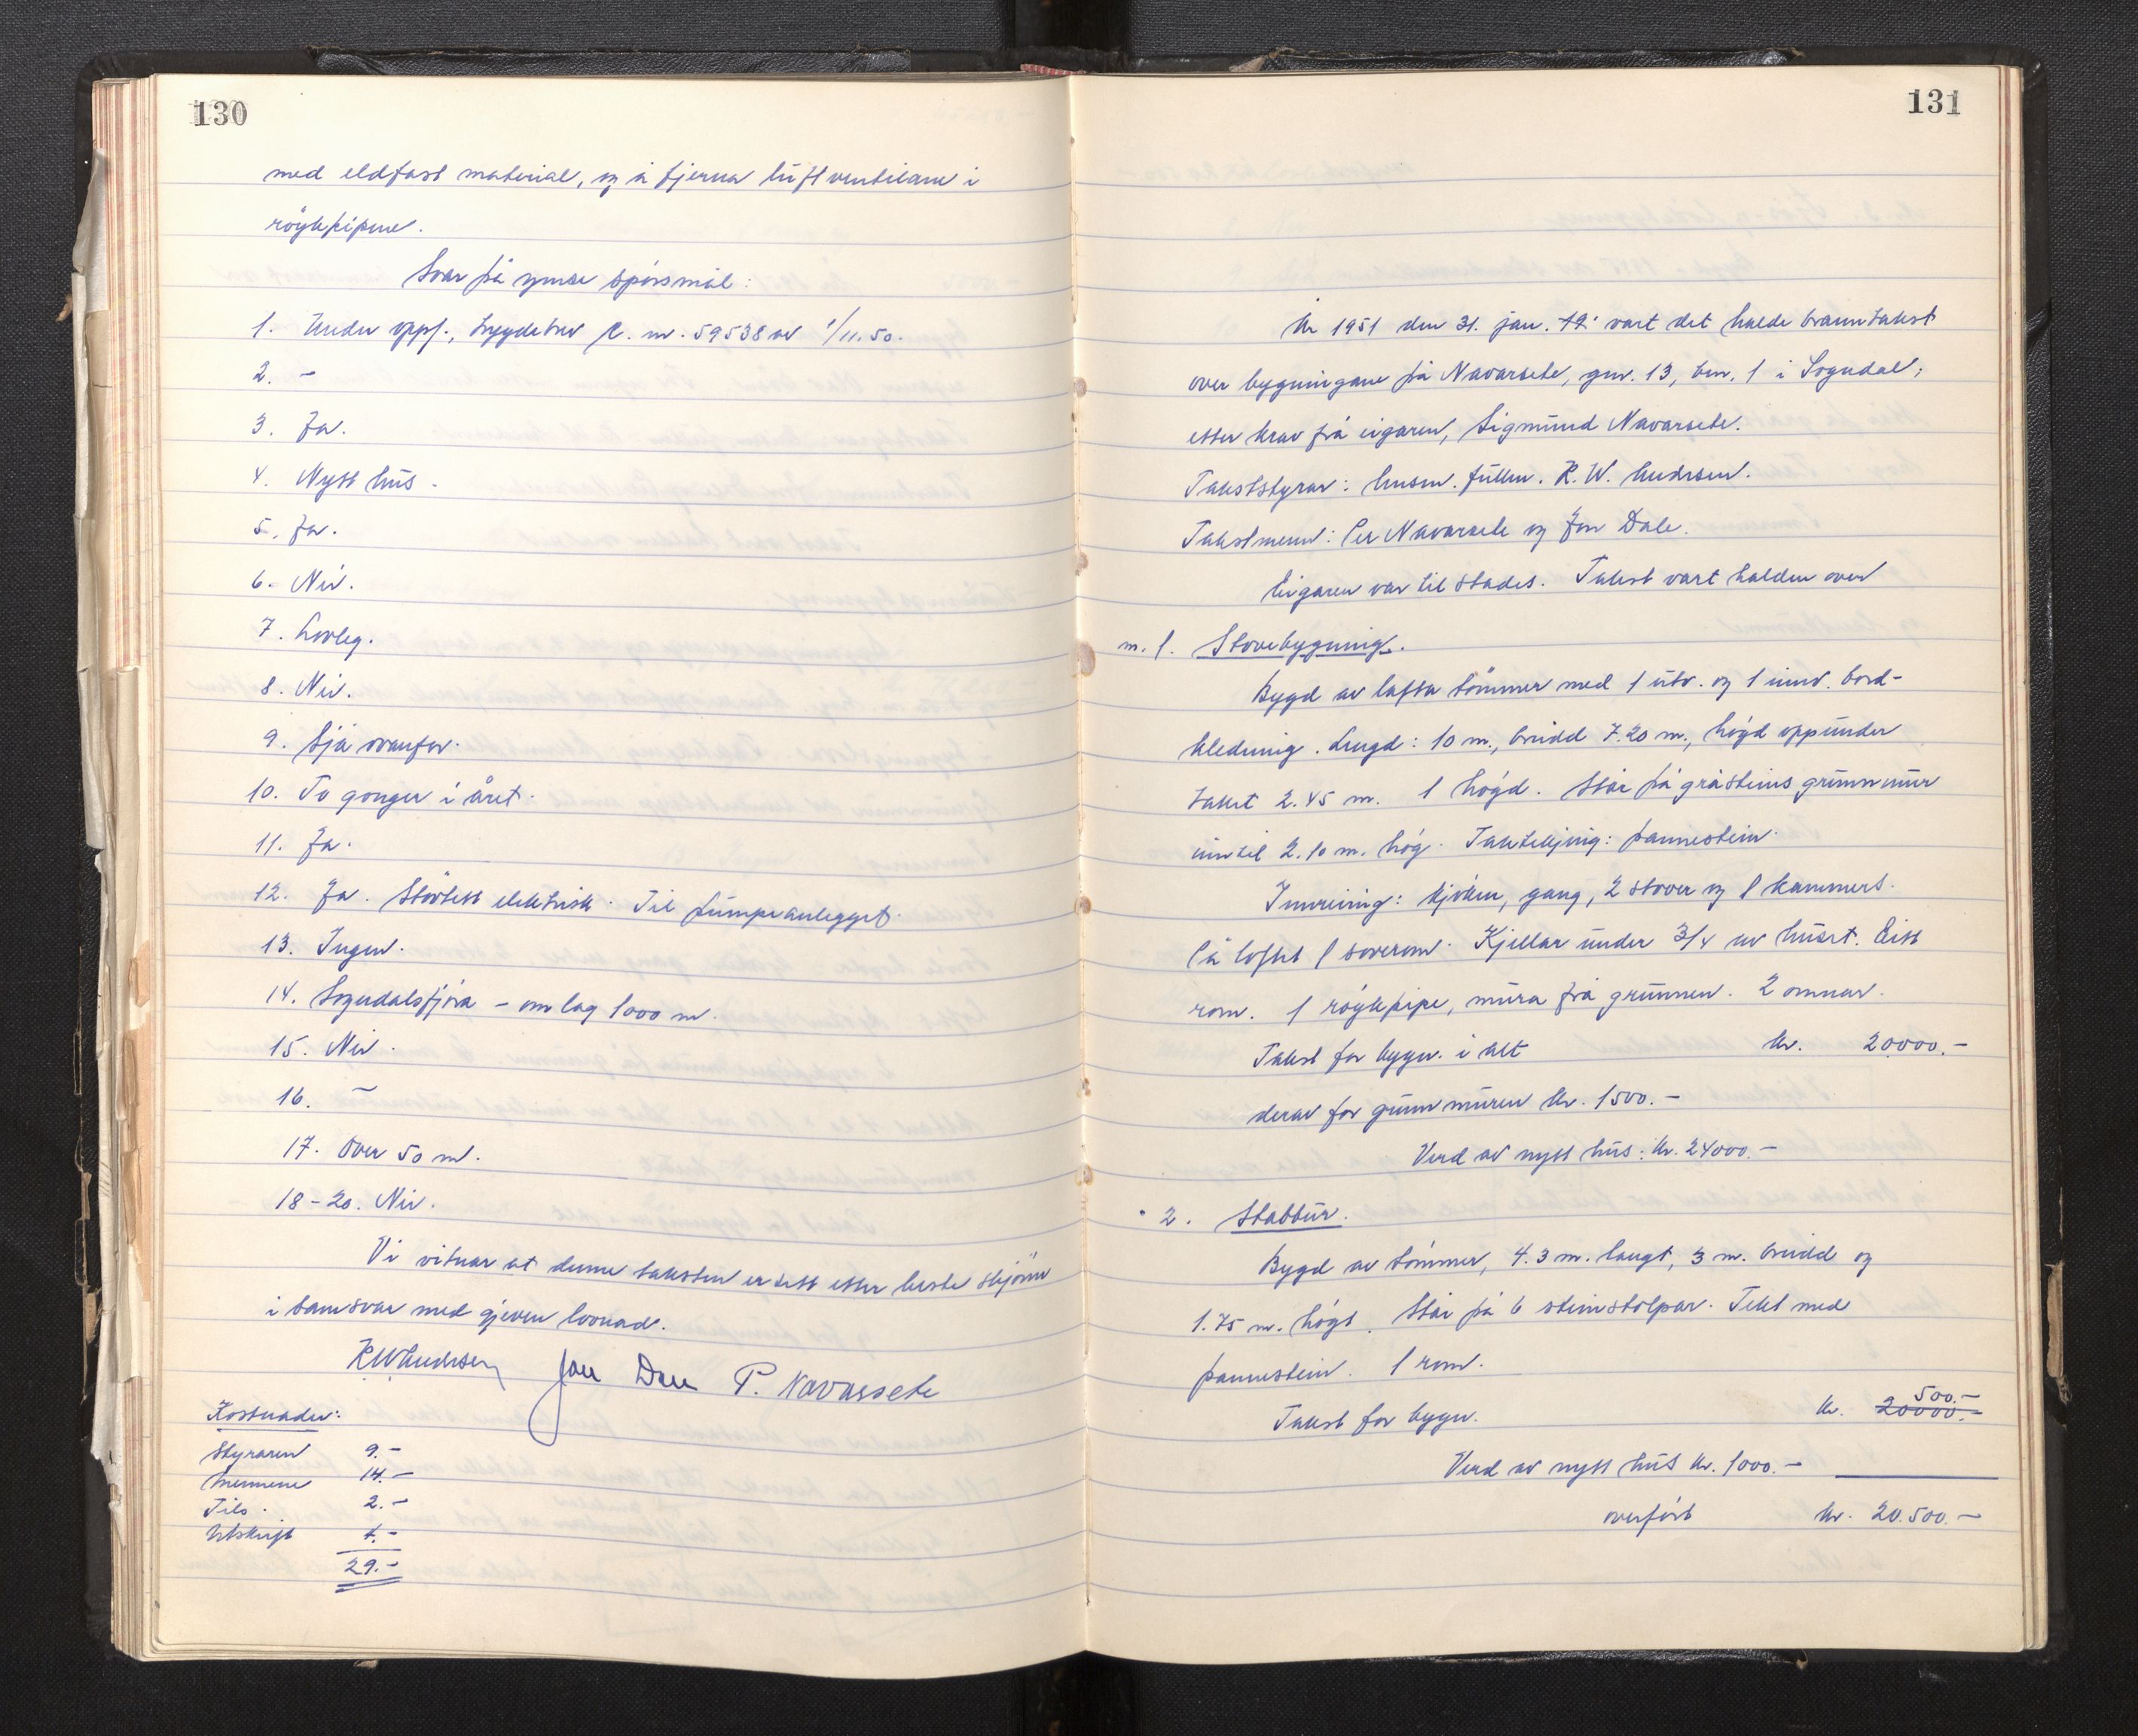 130
med eldfast material, og å fjerna luftventilane i
røykpipene.
Svar på ymse spörsmål:
1. Under oppf., byggjebrev nr. 59538 av 1/11.50.
2. -
3. Ja.
4. Nytt hus.
5. Ja.
6. Nei.
7. Lovleg.
8. Nei.
9. Sjå ovanfor.
10. To gonger i året.
11. Ja.
12. Ja. Støvtett elektrisk. Til pumpeanlegget.
13. Ingen.
14. Sogndalsfjöra - om lag 1000 m.
15. Nei.
16. -
17. Over 50 m.
18-20. Nei.
Vi vitnar at denne taksten er sett etter beste skjönn
i samsvar med gjeven lovnad.
R W Andresen Jon Dale P. Navarsete
Kostnader:
Styraren 9.-
Mennene 14.-
Tils. 2.-
Utskrift 4.-
29.-
131
År 1951 den 31. jan. vart det halde branntakst
over bygningane på Navarsete, gnr. 13, bnr. 1 i Sogndal,
etter krav frå eigaren, Sigmund Navarsete.
Takststyrar: lensm. fullm. R. W. Andresen.
Takstmenn: Per Navarsete og Jon Dale.
Eigaren var til stades. Takst vart halden over
m. 1. Stovebygning.
Bygd av lafta tömmer med 1 utv. og 1 innv. bord-
kledning. Lengd: 10 m., breidd 7.20 m., högd oppunder
taket 2.45 m. 1 högd. Står på gråsteins grunnmur
inntil 2.10 m. hög. Taktekjing: pannestein.
Innreiing: kjöken, gang, 2 stover og 1 kammers.
På loftet 1 soverom. Kjellar under 3/4 av huset. Eitt
rom. 1 röykpipe, mura frå grunnen. 2 omnar.
Takst for bygn. i alt kr. 20000.-
derav for grunnmuren kr. 1500.-
Verd av nytt hus: kr. 24000.-
" 2. Stabbur.
Bygd av tömmer, 4.3 m. langt, 3 m. breidd og
1.75 m. högt. Står på 6 steinstolpar. Tekt med
pannestein. 1 rom.
500.-
Takst for bygn. kr. 20000.-
Verd av nytt hus kr. 1000.-
overfört kr. 20.500.-